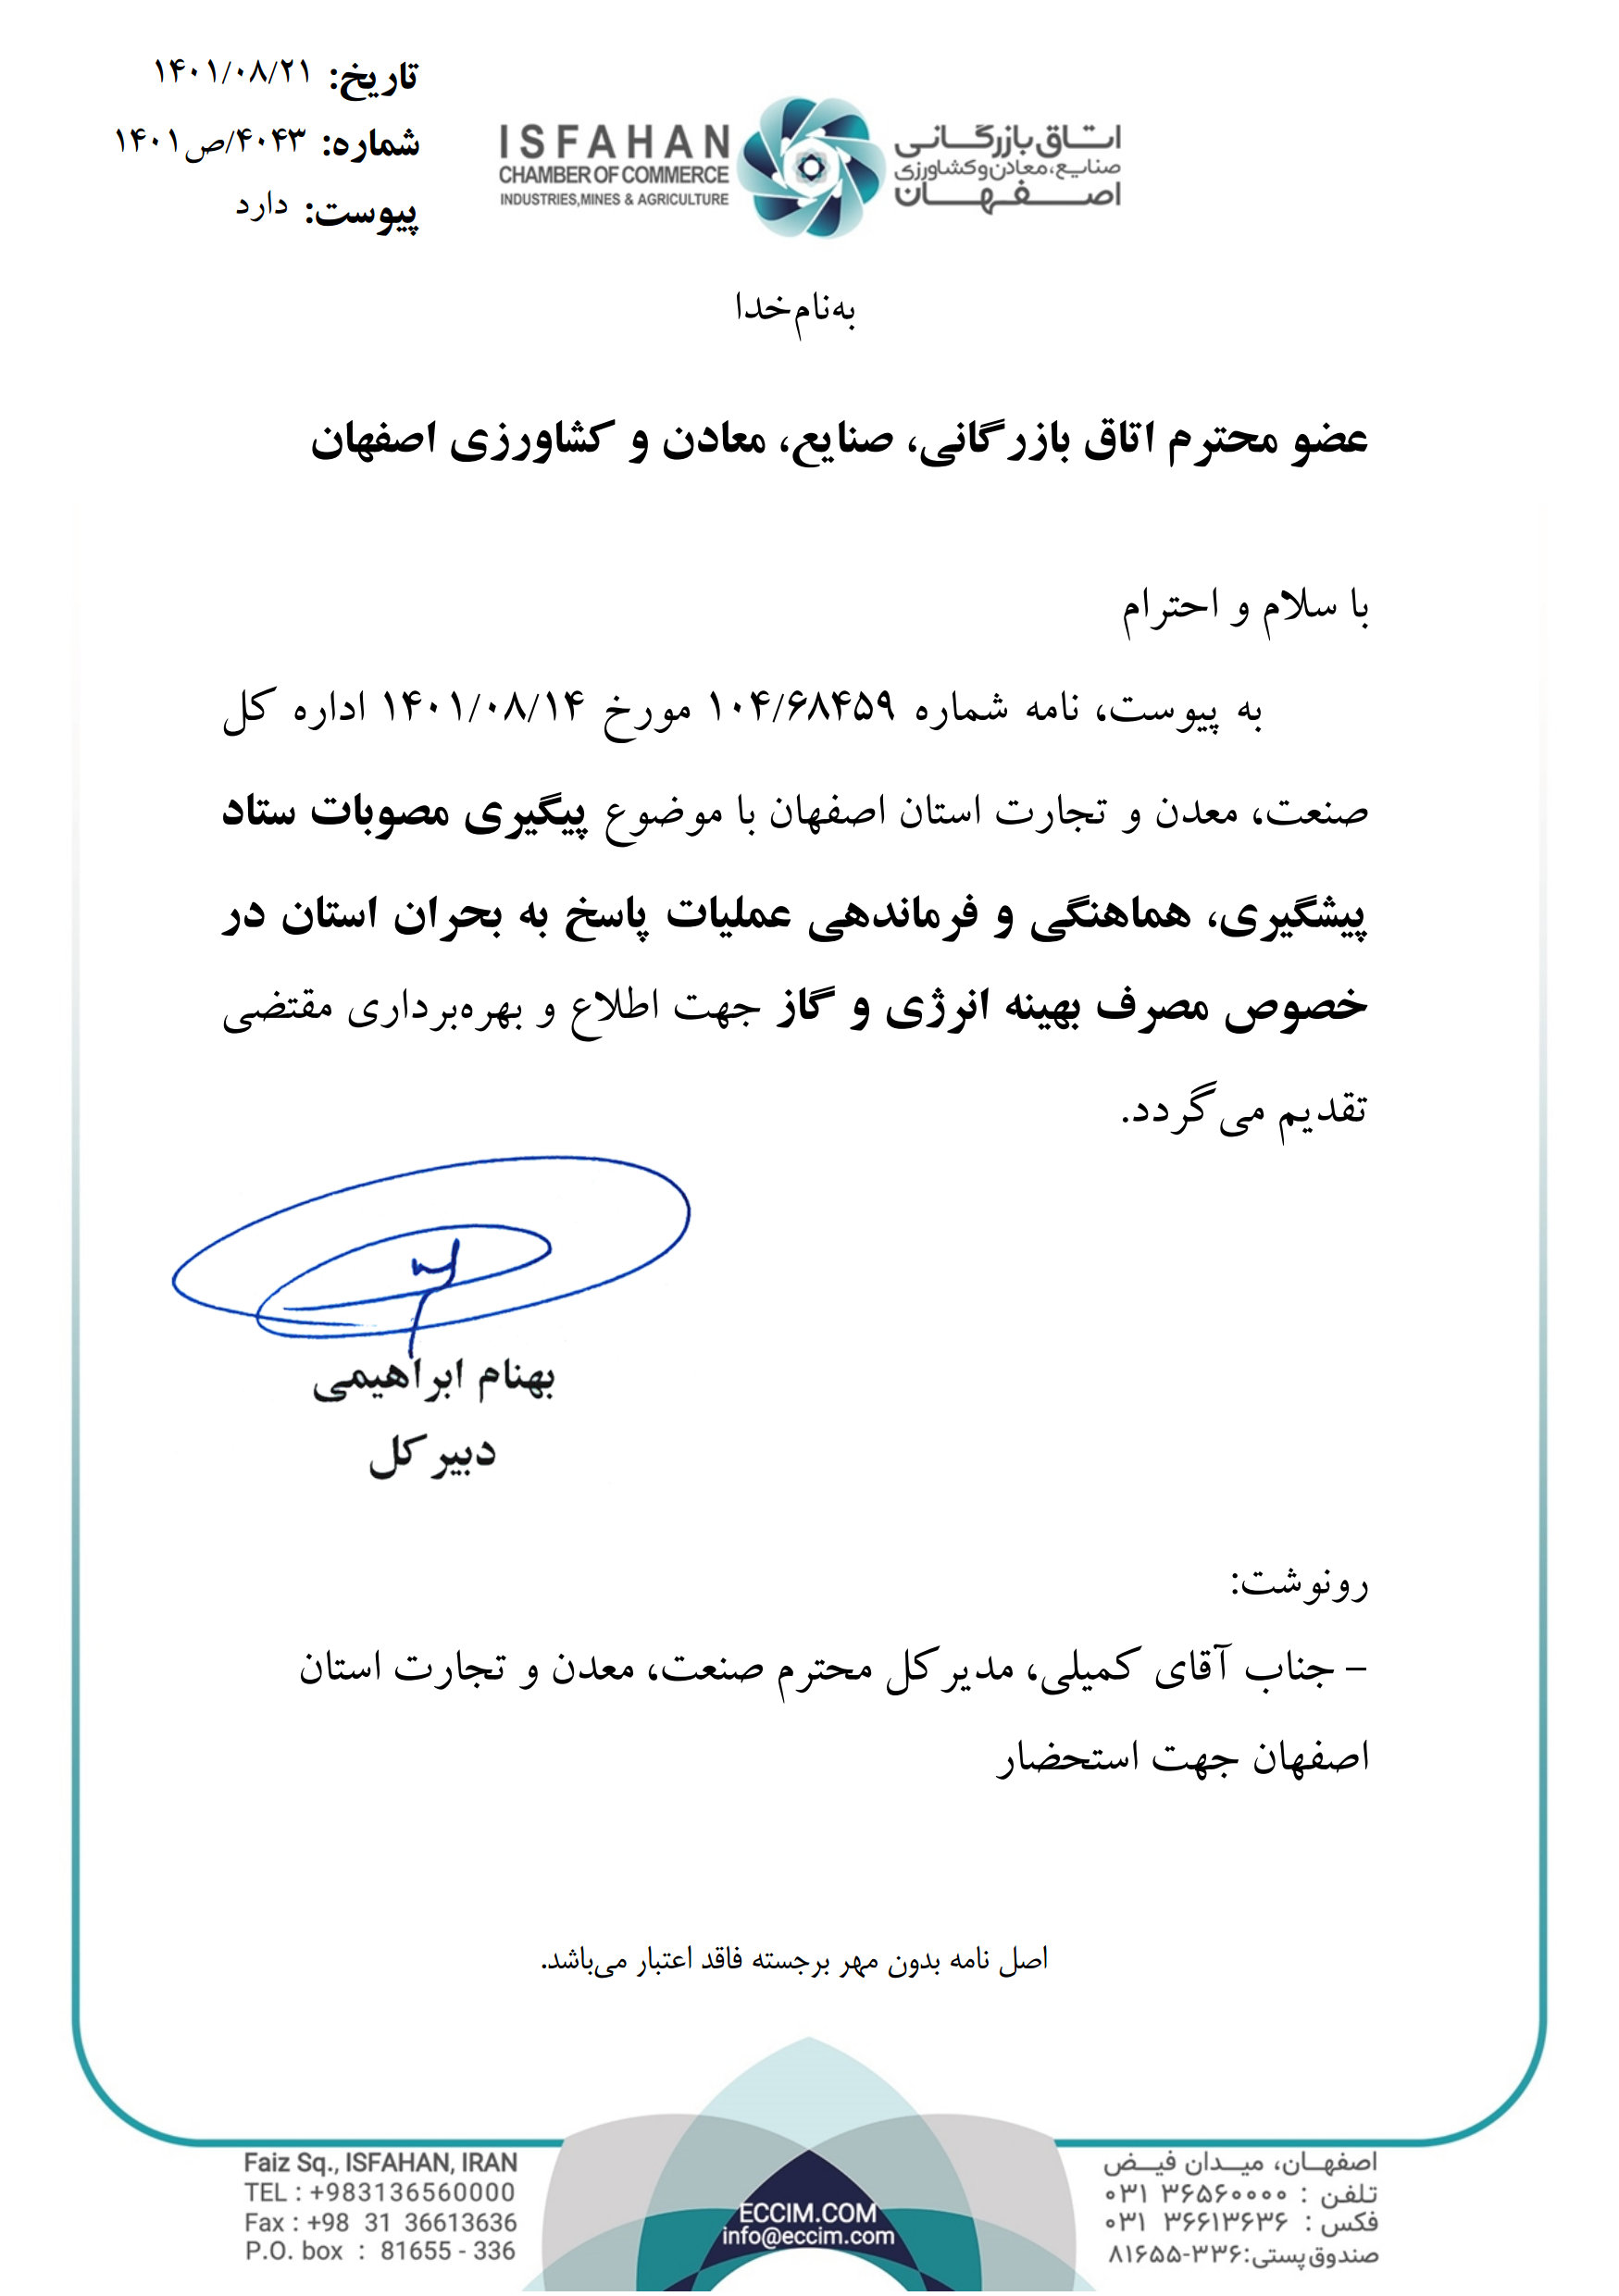 تاریخ: ۱۴۰۱/۰۸/۲۱
شماره: ۴۰۴۳/ص۱۴۰۱
پیوست: دارد
ISFAHAN
CHAMBER OF COMMERCE
INDUSTRIES,MINES & AGRICULTURE
اتاق بازرگانی
صنایع، معادن و کشاورزی
اصفهان
به‌نام‌خدا
عضو محترم اتاق بازرگانی، صنایع، معادن و کشاورزی اصفهان
با سلام و احترام
به پیوست، نامه شماره ۱۰۴/۶۸۴۵۹ مورخ ۱۴۰۱/۰۸/۱۴ اداره کل
صنعت، معدن و تجارت استان اصفهان با موضوع پیگیری مصوبات ستاد
پیشگیری، هماهنگی و فرماندهی عملیات پاسخ به بحران استان در
خصوص مصرف بهینه انرژی و گاز جهت اطلاع و بهره‌برداری مقتضی
تقدیم می‌گردد.
بهنام ابراهیمی
دبیرکل
رونوشت:
– جناب آقای کمیلی، مدیرکل محترم صنعت، معدن و تجارت استان
اصفهان جهت استحضار
اصل نامه بدون مهر برجسته فاقد اعتبار می‌باشد.
Faiz Sq., ISFAHAN, IRAN
TEL : +983136560000
Fax : +98 31 36613636
P.O. box : 81655 - 336
ECCIM.COM
info@eccim.com
اصفهـان، میـدان فیـض
تلفن : ۰۳۱ ۳۶۵۶۰۰۰۰
فکس : ۰۳۱ ۳۶۶۱۳۶۳۶
صندوق‌پستی:۸۱۶۵۵-۳۳۶